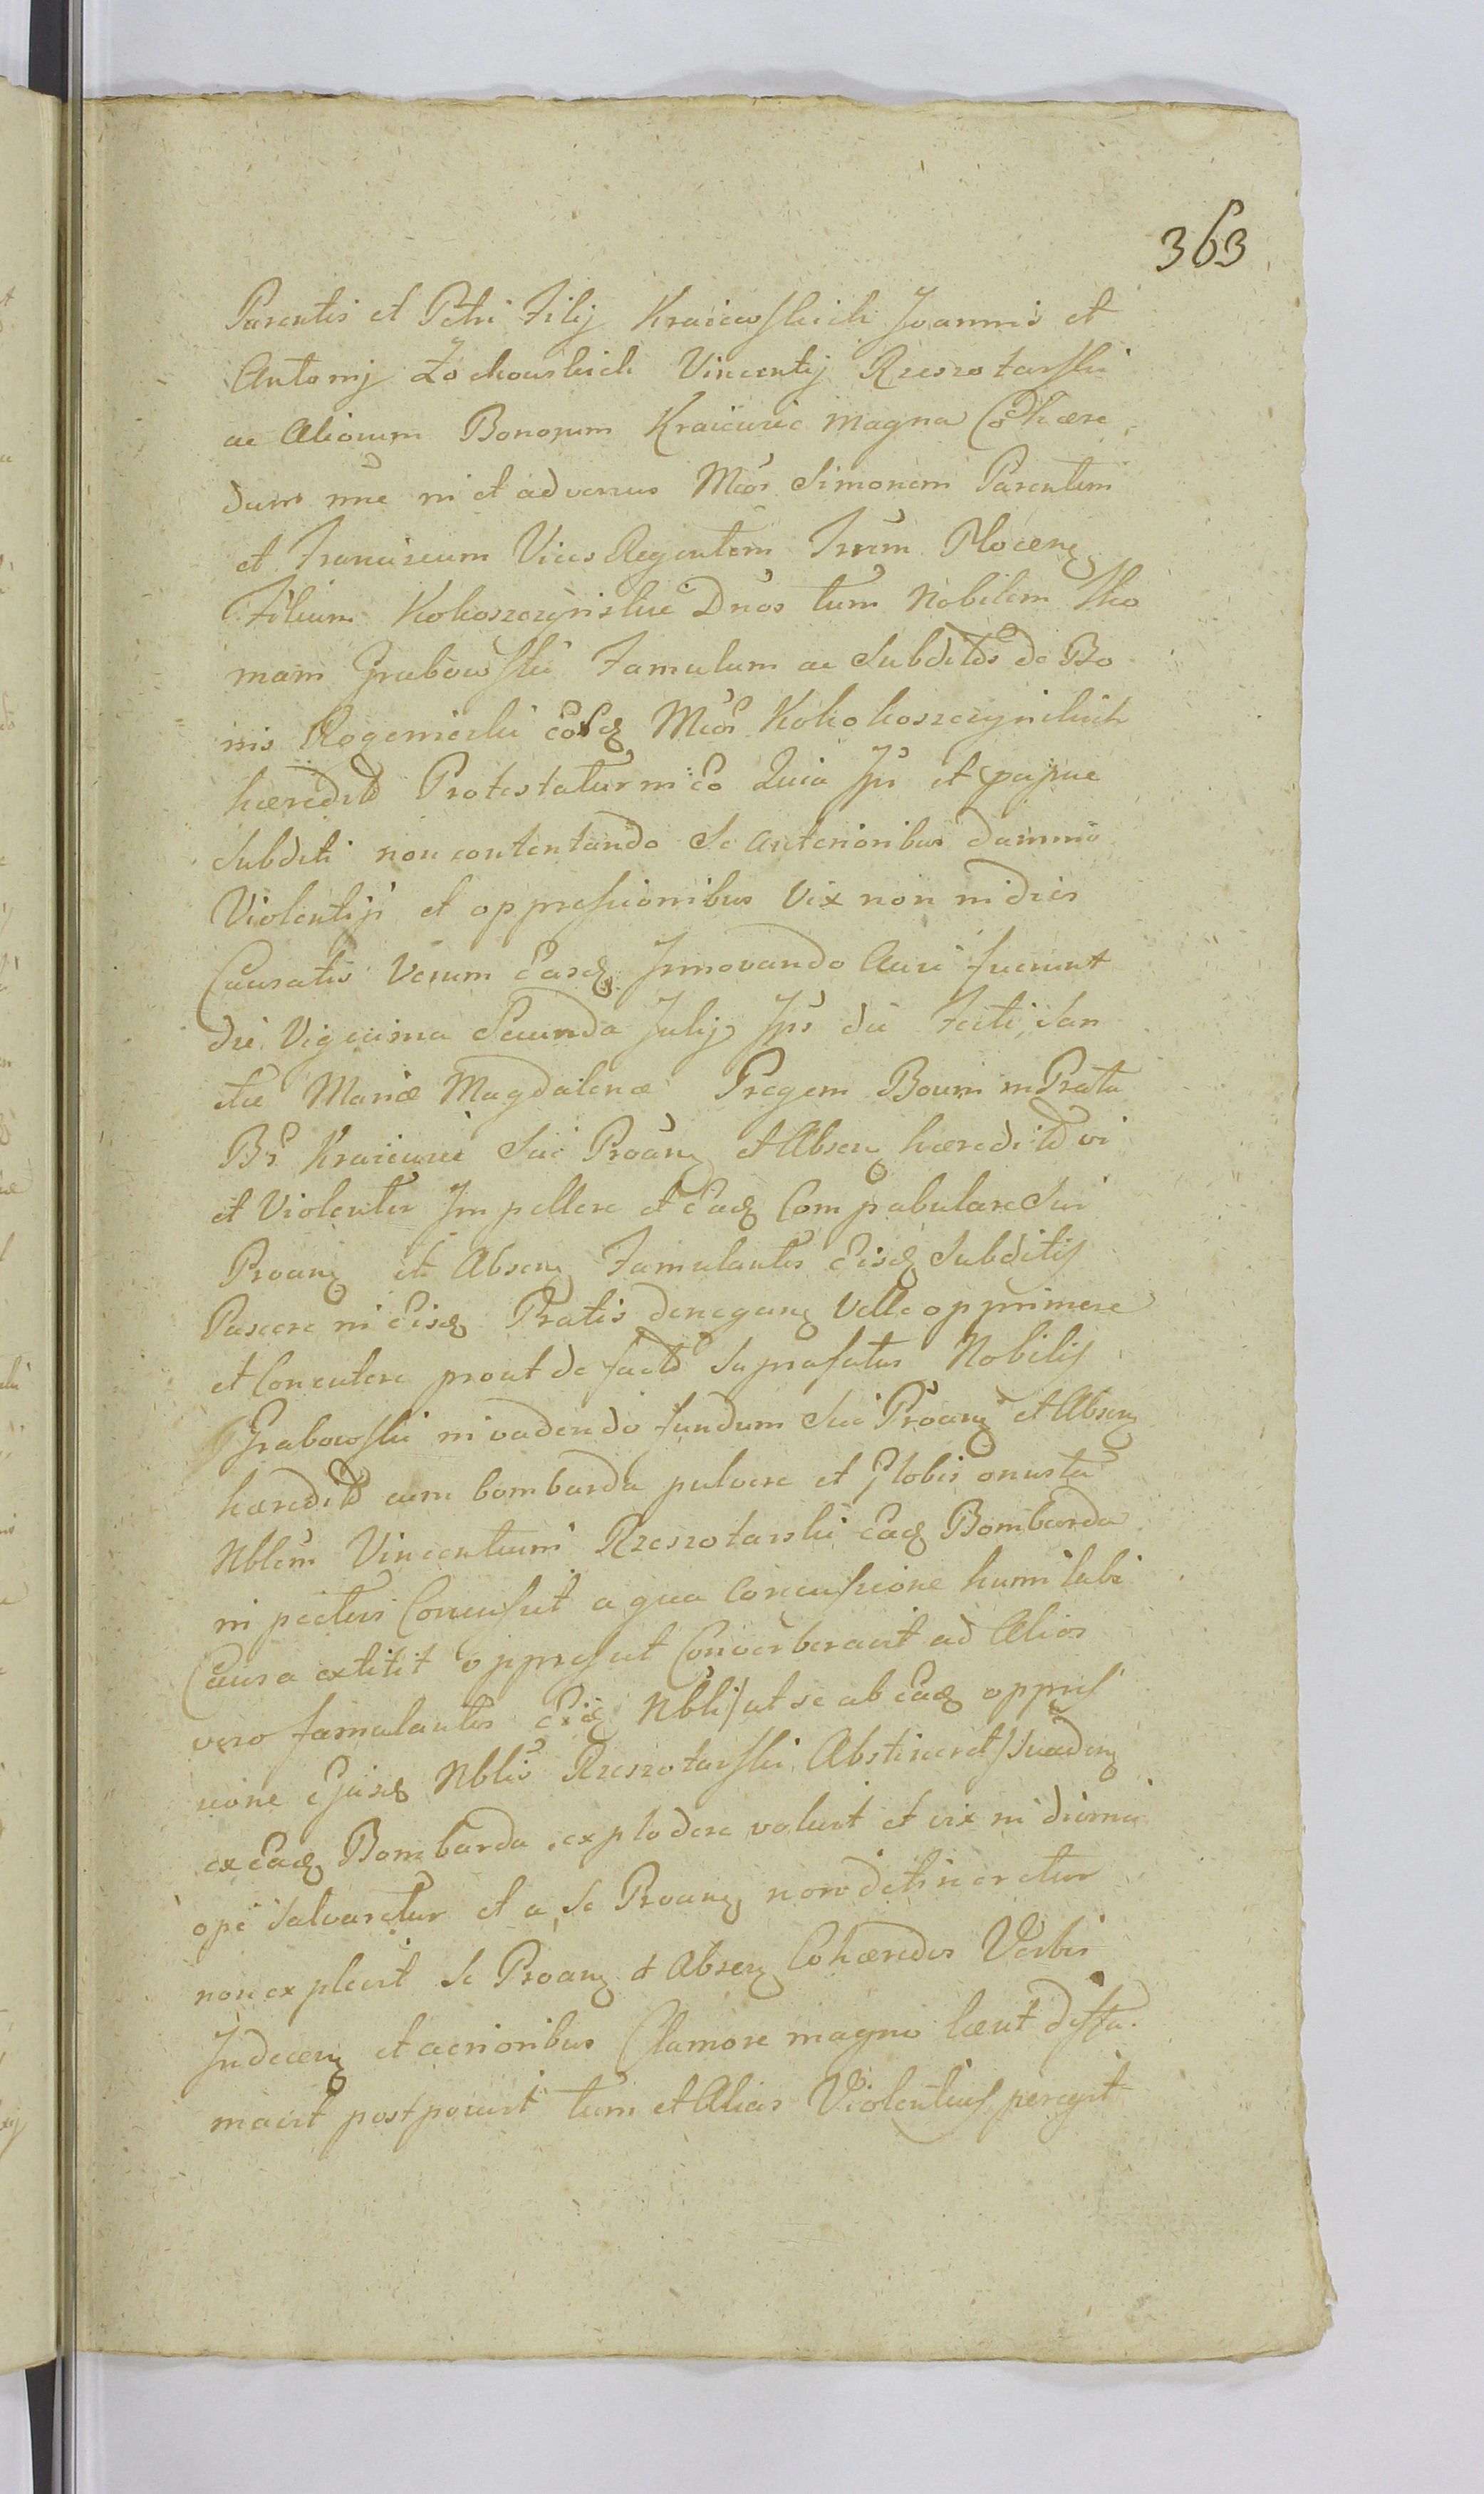 363
Parentis et Petri Filij Kraiewskich Joannis et
Antonij Żochowskich Vincentij Rzeszotarski
ac Aliorum Bonorum Kraiewic magna Cohære
dum nne in et adversus Mcos Simonem Parentem
et Franciscum Vices Regentem Trrum Plocens
Filium Kokoszczynskie Dnos tum Nobilem Tho
mam Grabowski Famulum ac Subditos de Bo
nis Rogenieski eosq Mcor Kokokoszczynskich
hæredit Protestatur in Eo Quia Ipsi et
Subditi non contentando Se anterioribus damnis
Violentijs et oppressionibus Vix non in dies
Causatis Verum Easq Innovando Ausi fuerunt
die Vigesima Secunda Julij Ips die Festi San
ctæ Mariæ Magdalenæ Gregem Boum in Prata
Br Kraiewic Sui Proãn et Absen hæredit vi
et Violenter Impellere et Eaq Compabulare Sui
Proãn et Absen Famulantes Eisq Subditis
Pascere in Eisq Pratis denegan Velle opprimere
et Concutere prout de facto Suprafatus Nobilis
Grabowski invadendo fundum Sui Proãn et Absen
hæredit cum bombarda pulvere et globis onusta
Nblem Vincentium Rzeszotarski Eaq Bombarda
in pectus Concussit a qua Concussione humi labi
Causa extitit oppressit Converberavit ad Alios
vero famulantes Nblis ut se ab Eaq oppres
sione Ejusq Nblis Rzeszotarski Abstineret Suaden
ex Eaq Bombarda explodere voluit et vix ni divina
ope salvaretur et a Se Proãn non detineretur
non explevit Se Proãn et Absen Cohæredes Verbis
Indecen et acrioribus Clamore magno læsit diffa
mavit postposuit tum et Alias Violentias peregit